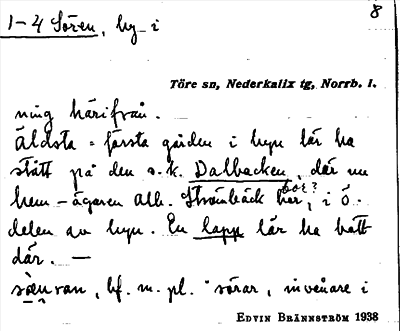 1-4 Sören, by i
8
Töre sn, Nederkalix tg, Norrb. l.
ning härifrån.
Äldsta = första gården i byn lär ha
stått på den s.k. Dalbacken, där nu
hem-ägaren Alb. Strömbäck bor, i ö.
bor?
delen av byn. En lapp lär ha bott
där. —
, bf. m. pl. sörar, invånare i
EDVIN BRÄNNSTRÖM 1938